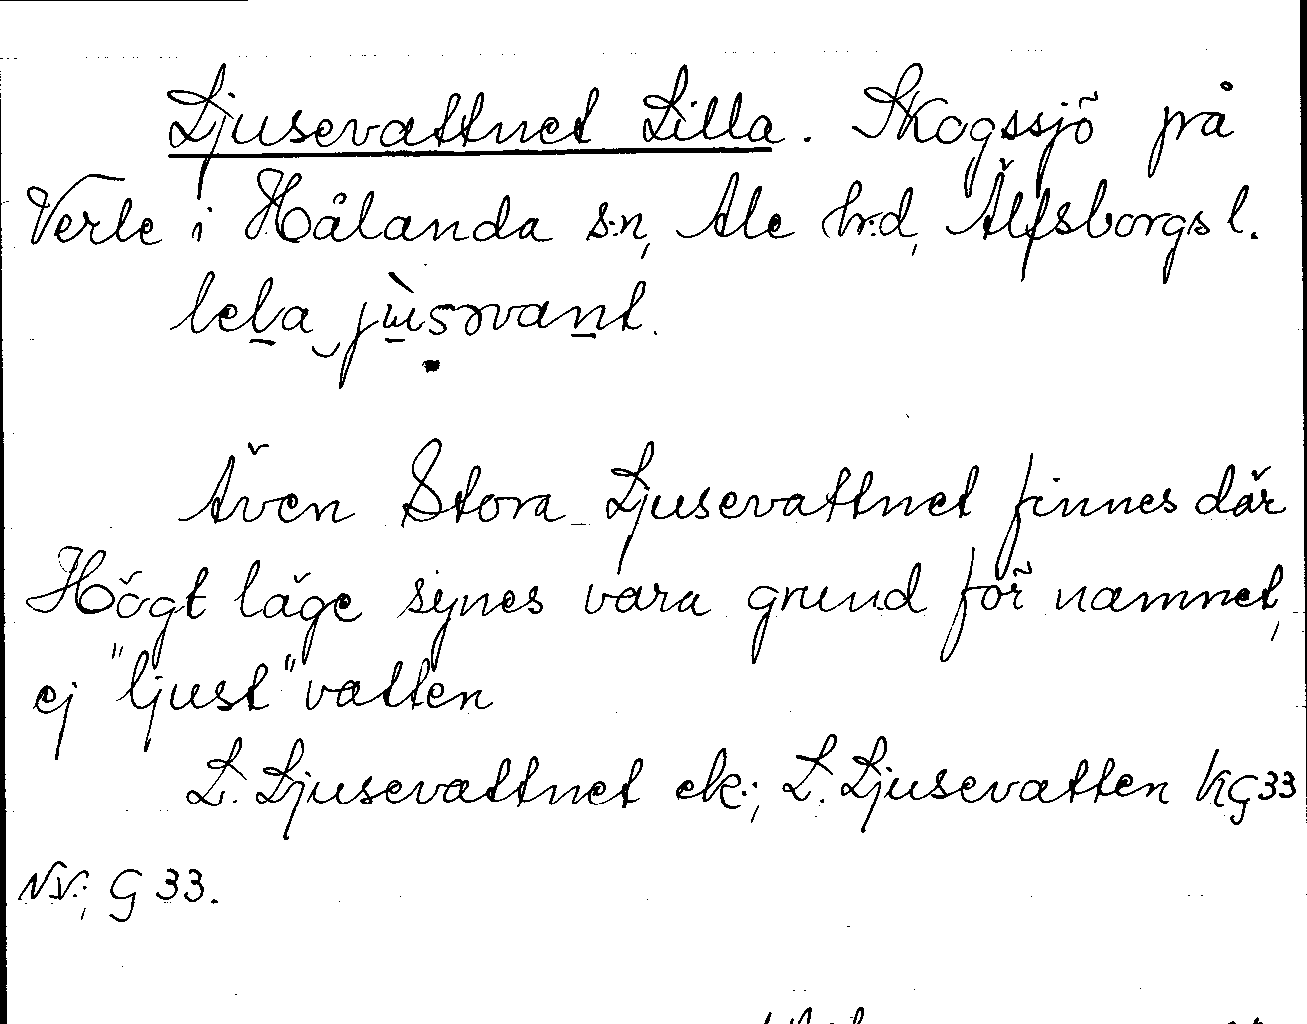 Ljusevattnet Lilla. Skogssjö på
Verle i Hålanda s:n, Ale h:d, Älfsborgs l.
Även Stora Ljusevattnet finnes där
Högt läge synes vara grund för namnet,
ej "ljust" vatten
L. Ljusevattnet ek.; L. Ljusevatten KG33
NV.; G 33.